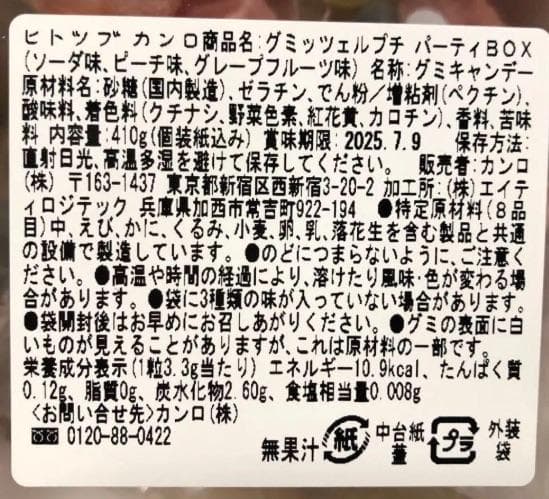 ヒトツブカンロ商品名:グミッツェルプチ パーティBOX
(ソーダ味、ピーチ味、グレープフルーツ味) 名称:グミキャンデー
原材料名:砂糖(国内製造)、ゼラチン、でん粉/増粘剤(ペクチン)、
酸味料、着色料(クチナシ、野菜色素、紅花黄、カロチン)、香料、苦味
料 内容量:410g(個装紙込み) 賞味期限:2025.7.9 保存方法:
直射日光、高温多湿を避けて保存してください。 販売者:カンロ
(株) 〒163-1437 東京都新宿区西新宿3-20-2 加工所:(株)エイテ
ィロジテック 兵庫県加西市常吉町922-194 ●特定原材料(8品
目)中、えび、かに、くるみ、小麦、卵、乳、落花生を含む製品と共通
の設備で製造しています。●のどにつまらないように、ご注意く
ださい。●高温や時間の経過により、溶けたり風味・色が変わる場
合があります。●袋に3種類の味が入っていない場合があります。
●袋開封後はお早めにお召しあがりください。●グミの表面に白
いものが見えることがありますが、これは原材料の一部です。
栄養成分表示(1粒3.3g当たり) エネルギー10.9kcal、たんぱく質
0.12g、脂質0g、炭水化物2.60g、食塩相当量0.008g
〈お問い合せ先〉カンロ(株)
0120-88-0422
無果汁 紙 中台紙 蓋 プラ 外装 袋